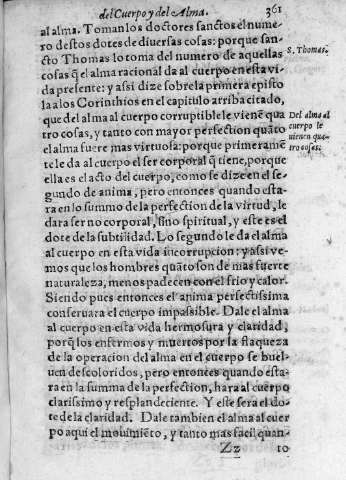 del Cuerpo y del Alma. 361
al alma. Toman los doctores sanctos el nume-
ro destos dotes de diuersas cosas: porque san-
cto Thomas lo toma del numero de aquellas
S. Thomas.
cosas q̃ el alma racional da al cuerpo en esta vi
da presente: y assi dize sobre la primera episto
la a los Corinthios en el capitulo arriba citado,
que del alma al cuerpo corruptible le vienẽ qua
tro cosas, y tanto con mayor perfection quãto
el alma fuere mas virtuosa: porque primeramẽ
te le da al cuerpo el ser corporal q̃ tiene, porque
Del alma al
cuerpo le
vienen qua-
tro cosas.
ella es el acto del cuerpo, como se dize en el se-
gundo de anima, pero entonces quando esta-
ra en lo summo de la perfection de la virtud, le
dara ser no corporal, sino spiritual, y este es el
dote de la subtilidad. Lo segundo le da el alma
al cuerpo en esta vida incorrupcion: y assi ve-
mos que los hombres quãto son de mas fuerte
naturaleza, menos padecen con el frio y calor.
Siendo pues entonces el anima perfectissima
conseruara el cuerpo impassible. Dale el alma
al cuerpo en esta vida hermosura y claridad,
porq̃ los enfermos y muertos por la flaqueza
de la operacion del alma en el cuerpo se buel-
uen descoloridos, pero entonces quando esta-
ra en la summa de la perfection, hara al cuerpo
clarissimo y resplandeciente. Y este sera el do-
te de la claridad. Dale tambien el alma al cuer
po aqui el mouimiẽto, y tanto mas facil quan-
Zz to